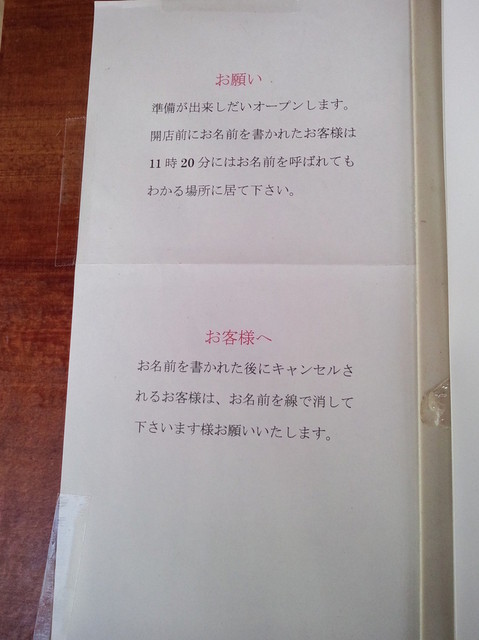 お願い
準備が出来しだいオープンします。
開店前にお名前を書かれたお客様は
11時20分にはお名前を呼ばれても
わかる場所に居て下さい。
お客様へ
お名前を書かれた後にキャンセルさ
れるお客様は、お名前を線で消して
下さいます様お願いいたします。